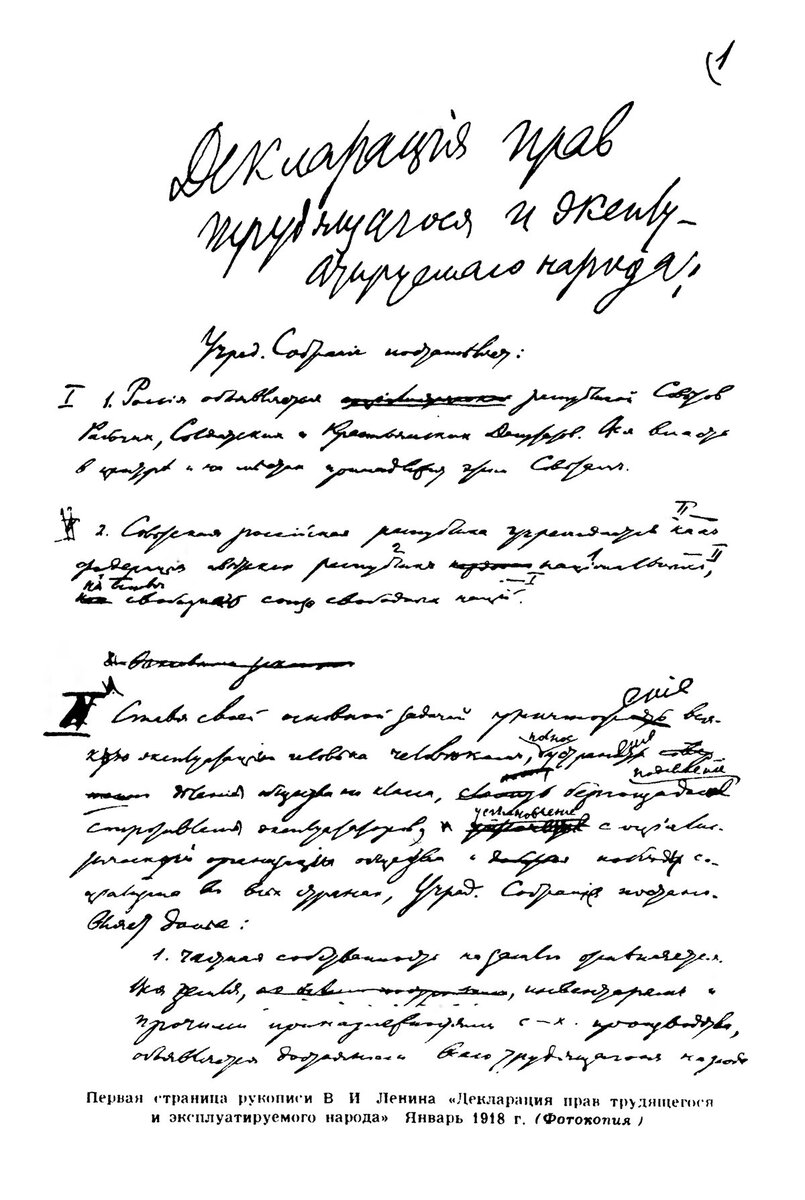 1
Декларація прав
трудящагося и эксплу-
атируемаго народа:
Учред. Собраніе постановляет:
I 1. Россія объявляется республикой Советов
Рабочих, Солдатских и Крестьянских Депутатов. Вся власть
в центре и на местах принадлежит этим Советам.
2. Советская россійская республика учреждается как II
федерація советских республик 2 національных 1, II
на основе свободнаго союза свободных націй. I
Ставя своей основной задачей уничтоженіе вся-
кой эксплуатаціи человека человеком, полное устраненіе
деленія общества на классы, беспощадное подавленіе
эксплуататоров, установленіе соціалис-
тической организаціи общества и победу со-
ціализма во всех странах, Учред. Собраніе постано-
вляет далее:
1. Частная собственность на землю отменяется.
Вся земля, инвентарем и
прочими принадлежностями с-х. производства,
объявляется достояніем всего трудящагося народа
Первая страница рукописи В И Ленина «Декларация прав трудящегося
и эксплуатируемого народа» Январь 1918 г. (Фотокопия)